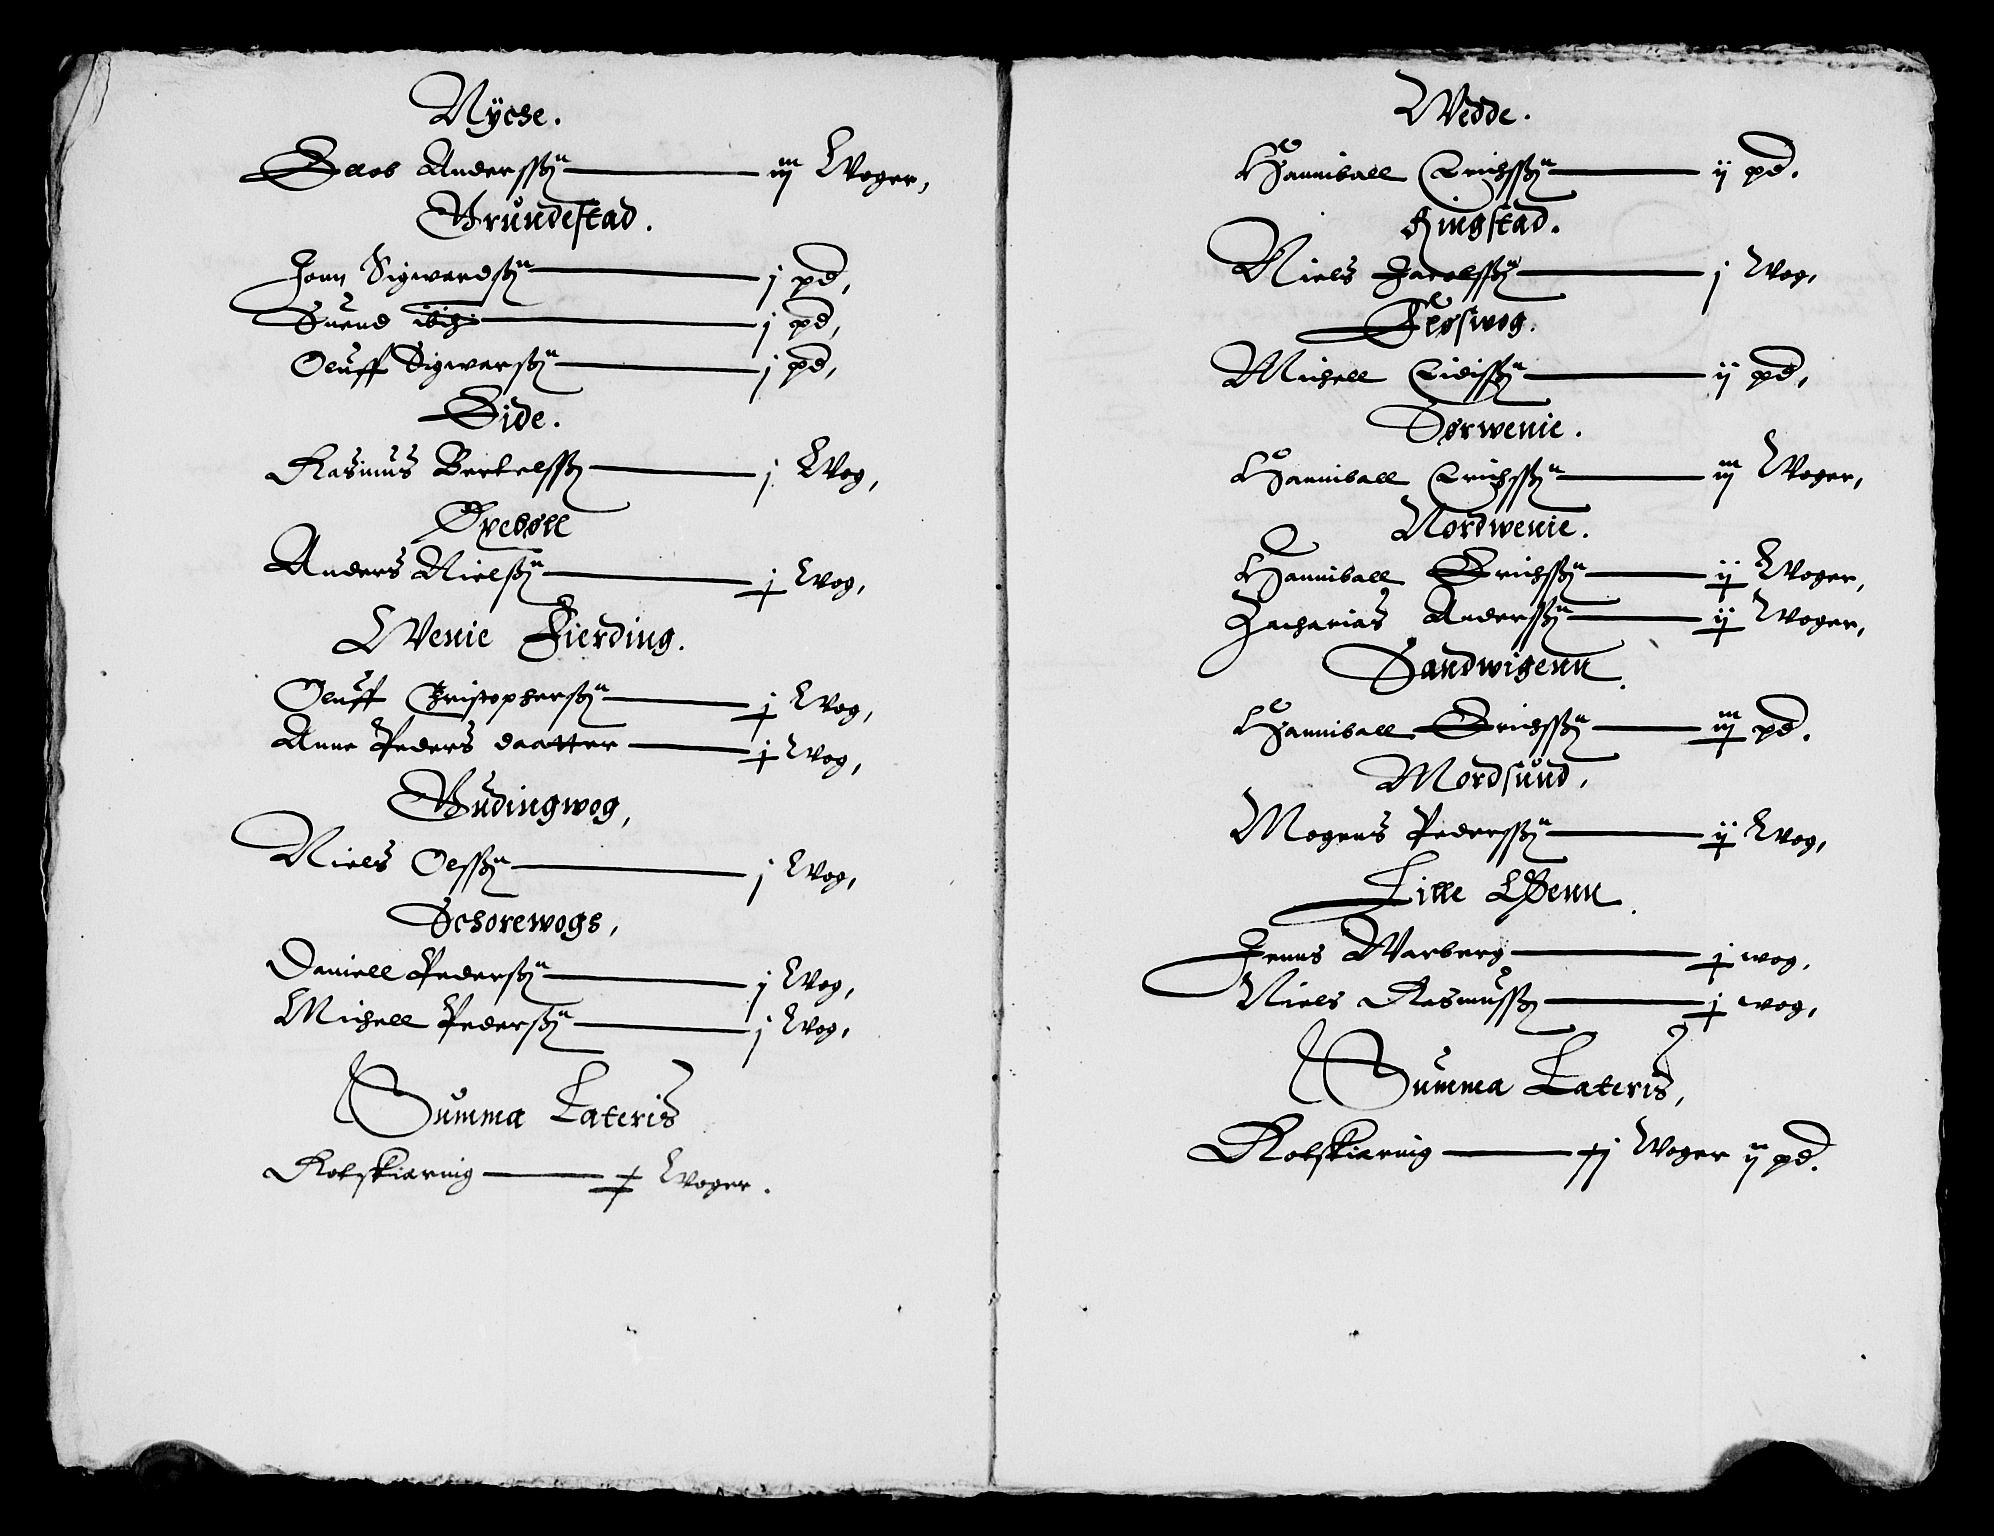 Nyche.
Jacob Anderssøn — iij Woger,
Grundestad.
Jonn Sigwardsøn — j pd,
Suend ibid: — j pd,
Oluff Sigwarsøn — j pd,
Eide.
Rasmus Bertelssøn — j Wog,
Opebøll
Anders Nielsøn — j Wog,
Wenie Fierding.
Oluff Christophersøn — j Wog,
Anne Peders daatter — j Wog,
Gudingwog,
Niels Olssøn — j Wog,
Schorewogs,
Daniell Pedersøn — j Wog,
Michell Pedersøn — j Wog,
Summa Lateris
Rotskiering — x Woger.
Wedde.
Hanniball Erichssøn — ij pd.
Ringstad.
Niels Jacobssøn — j Wog,
Fløswog.
Michell — ij pd,
Sørwenie.
Hanniball Erichssøn — iij Woger,
Nordwenie.
Hanniball Erichssøn — ij Woger,
Zacharias Anderssøn — ij Woger,
Sandwigenn.
Hanniball Erichssøn — iij pd.
Mordsund,
Mogens Pederssøn — ij Wog,
Lille Wenn.
Jenns Warberg — j wog,
Niels Rasmussøn — j wog,
Summa Lateris,
Rotskiering — xij Woger ij pd.